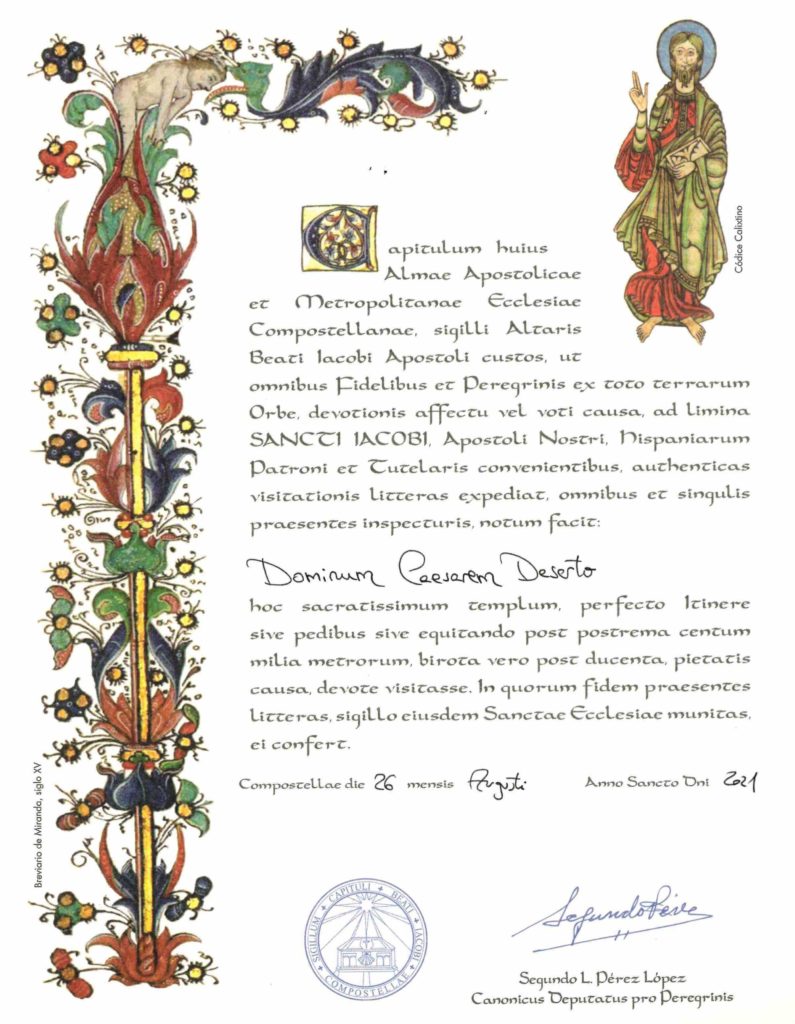 Códice Calixtino
Capitulum huius
Almae Apostolicae
et Metropolitanae Ecclesiae
Compostellanae, sigilli Altaris
Beati Iacobi Apostoli custos, ut
omnibus Fidelibus et Peregrinis ex toto terrarum
Orbe, devotionis affectu vel voti causa, ad limina
SANCTI IACOBI, Apostoli Nostri, Hispaniarum
Patroni et Tutelaris convenientibus, authenticas
visitationis litteras expediat, omnibus et singulis
praesentes inspecturis, notum facit:
Dominum Caesarem Deserto
hoc sacratissimum templum, perfecto Itinere
sive pedibus sive equitando post postrema centum
milia metrorum, birota vero post ducenta, pietatis
causa, devote visitasse. In quorum fidem praesentes
litteras, sigillo eiusdem Sanctae Ecclesiae munitas,
ei confert.
Compostellae die 26 mensis Augusti Anno Sancto Dni 2021
Breviario de Miranda, siglo XV
SIGILLUM CAPITULI BEATI JACOBI COMPOSTELLAE
Segundo Pérez
Segundo L. Pérez López
Canonicus Deputatus pro Peregrinis